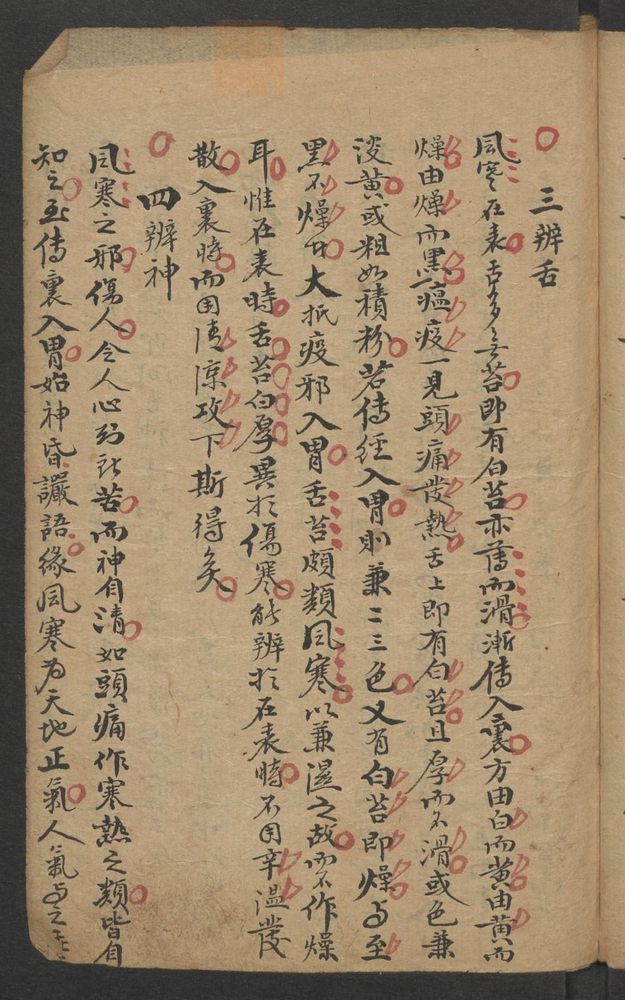 三辨舌
風寒在表舌多无苔即有白苔亦薄而滑漸傳入裏方由白而黄由黄而
燥由燥而黑瘟疫一見頭痛發熱舌上即有白苔且厚而不滑或色兼
淡黄或粗如積粉若傳經入胃則兼二三色又有白苔即燥与至
黑不燥者大抵疫邪入胃舌苔頗類風寒以兼濕之故而不作燥
耳惟在表時舌苔白厚異於傷寒能辨於在表時不用辛溫發
散入裏時而用清凉攻下斯得矣
四辨神
風寒之邪傷人令人心知所苦而神自清如頭痛作寒熱之類皆自
知之至傳裏入胃始神昏讝語緣風寒为天地正氣人氣与之